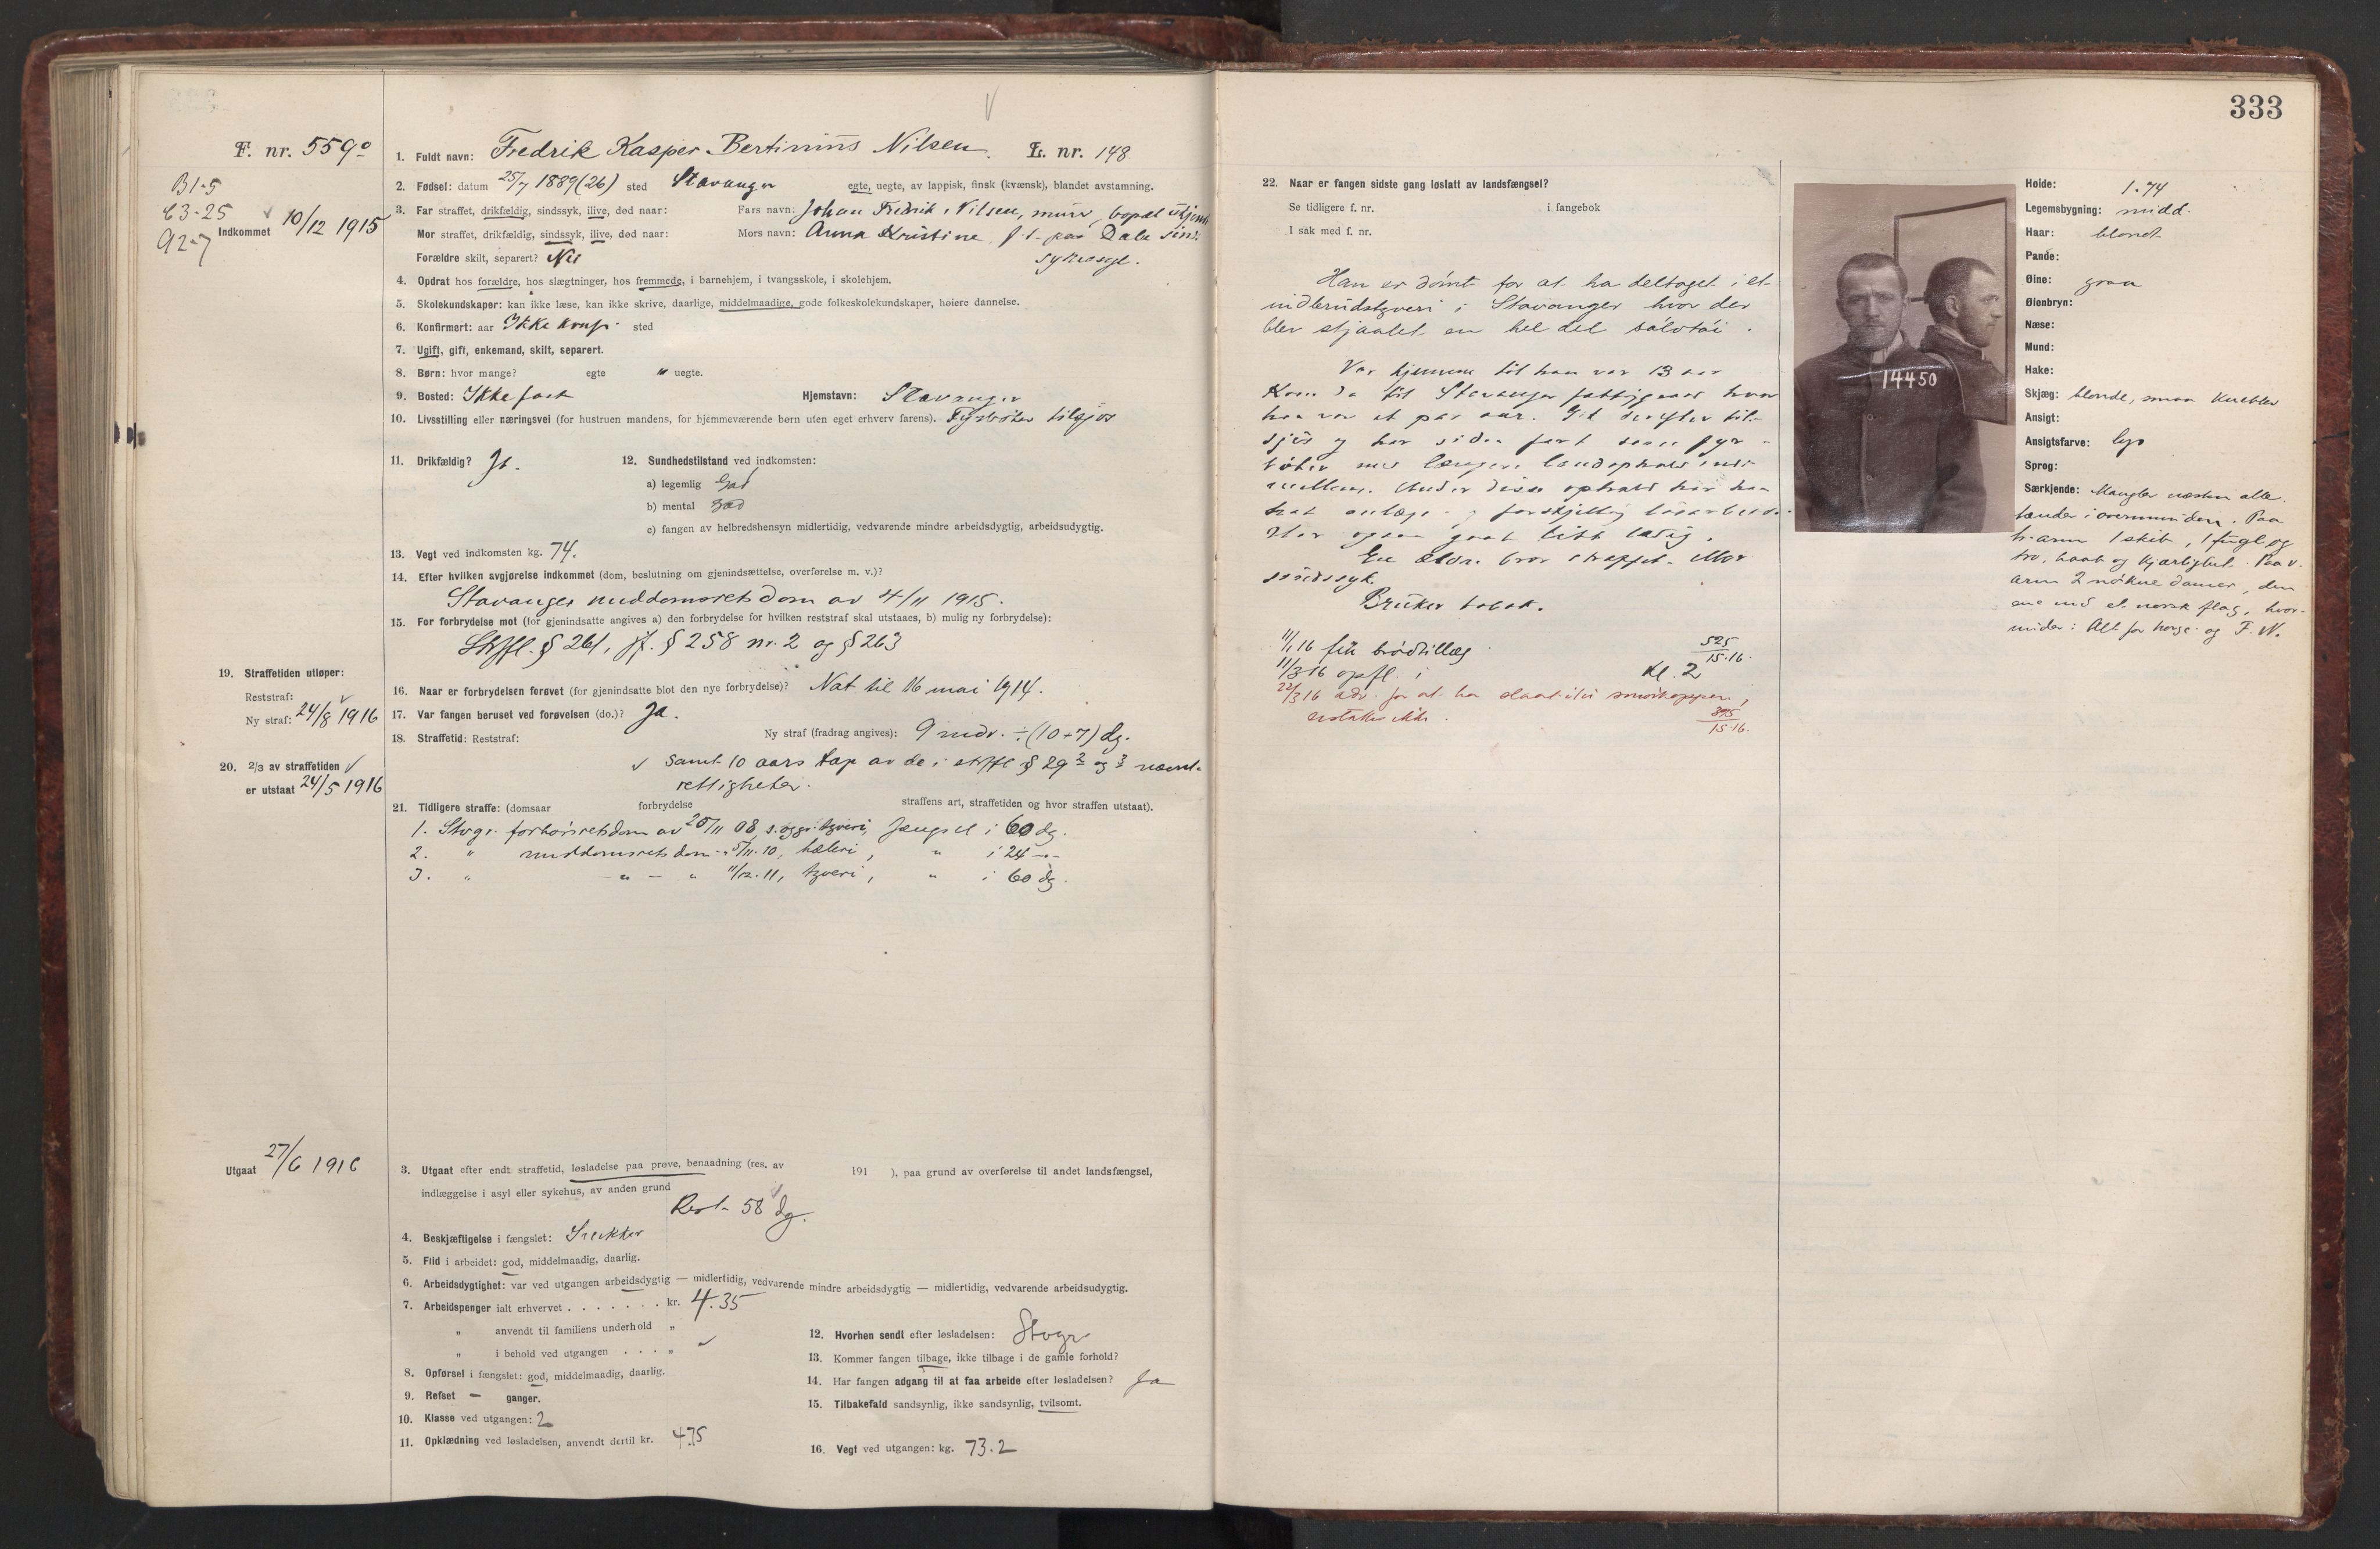 333
F. nr. 5590
B1-5
C3-25
A2-7
Indkommet 10/12 1915
1. Fuldt navn: Fredrik Kasper Bertinius Nilsen. L. nr. 148
2. Fødsel: datum 25/7 1889 (26) sted Stavanger egte, uegte, av lappisk, finsk (kvænsk), blandet avstamning.
3. Far straffet, drikfældig, sindssyk, ilive, død naar: Fars navn: Johan Fredrik Nilsen, murer, bopæl
Mor straffet, drikfældig, sindssyk, ilive, død naar: Mors navn: Anna Kristine, f.t. paa Dale sinds
Forældre skilt, separert? Nei sykeasyl.
4. Opdrat hos forældre, hos slægtninger, hos fremmede, i barnehjem, i tvangsskole, i skolehjem.
5. Skolekundskaper: kan ikke læse, kan ikke skrive, daarlige, middelmaadige, gode folkeskolekundskaper, høiere dannelse.
6. Konfirmert: aar Ikke konf. sted
7. Ugift, gift, enkemand, skilt, separert.
8. Børn: hvor mange? egte " uegte.
9. Bosted: Ikke fast Hjemstavn: Stavanger
10. Livsstilling eller næringsvei (for hustruen mandens, for hjemmeværende børn uten eget erhverv farens). Fyrbøter tilsjøs
11. Drikfældig? Ja. 12. Sundhedstilstand ved indkomsten:
a) legemlig God
b) mental God
c) fangen av helbredshensyn midlertidig, vedvarende mindre arbeidsdygtig, arbeidsudygtig.
13. Vegt ved indkomsten kg. 74.
14. Efter hvilken avgjørelse indkommet (dom, beslutning om gjenindsættelse, overførelse m. v.)?
Stavanger meddomsrets dom av 4/11 1915.
15. For forbrydelse mot (for gjenindsatte angives a) den forbrydelse for hvilken reststraf skal utstaaes, b) mulig ny forbrydelse):
Strfl. § 261, jf. § 258 nr. 2 og § 263
16. Naar er forbrydelsen forøvet (for gjenindsatte blot den nye forbrydelse)? Nat til 16 mai 1914.
17. Var fangen beruset ved forøvelsen (do.)? Ja.
18. Straffetid: Reststraf: Ny straf (fradrag angives): 9 mdr. ÷ (10+7) dg.
Samt 10 aars tap av de i strfl § 29 2 og 3 nævnte
rettigheter.
19. Straffetiden utløper:
Reststraf:
Ny straf: 24/8 1916
20. 2/3 av straffetiden
er utstaat 24/5 1916
21. Tidligere straffe: (domsaar forbrydelse straffens art, straffetiden og hvor straffen utstaat).
1. Stvgr. forhørsrets dom av 20/11 08, tyveri, fængsel i 60 dg.
2. " meddomsrets dom " 5/11.10, hæleri, " i 24 -"-
3. " -"- " 11/12.11, tyveri, " i 60 dg.
Utgaat 27/6 1916
3. Utgaat efter endt straffetid, løsladelse paa prøve, benaadning (res. av 191 ), paa grund av overførelse til andet landsfængsel,
indlæggelse i asyl eller sykehus, av anden grund
Rest 58 dg.
4. Beskjæftigelse i fængslet: Snekker
5. Flid i arbeidet: god, middelmaadig, daarlig.
6. Arbeidsdygtighet: var ved utgangen arbeidsdygtig — midlertidig, vedvarende mindre arbeidsdygtig — midlertidig, vedvarende arbeidsudygtig.
7. Arbeidspenger ialt erhvervet . . . . . . . kr. 4.35
" anvendt til familiens underhold "
" i behold ved utgangen . . . "
8. Opførsel i fængslet: god, middelmaadig, daarlig.
9. Refset — ganger.
10. Klasse ved utgangen: 2
11. Opklædning ved løsladelsen, anvendt dertil kr. 4.75
12. Hvorhen sendt efter løsladelsen: Stvgr
13. Kommer fangen tilbage, ikke tilbage i de gamle forhold?
14. Har fangen adgang til at faa arbeide efter løsladelsen? Ja
15. Tilbakefald sandsynlig, ikke sandsynlig, tvilsomt.
16. Vegt ved utgangen: kg. 73.2
22. Naar er fangen sidste gang løslatt av landsfængsel?
Se tidligere f. nr. i fangebok
I sak med f. nr.
Han er dømt for at ha deltaget i et
indbrudstyveri i Stavanger hvor der
blev stjaalet en hel del sølvtøi.
Var hjemme til han var 13 aar
Kom da til Stavanger fattiggaard hvor
han var et par aar. Gik derefter til-
sjøs og har siden fart som fyr-
bøter med længere landophold indi-
mellem. Under disse ophold har han
hat anlægs- og forskjellig løsarbeide.
Har ogsaa gaat litt ledig.
En ældre bror straffet. Mor
sindssyk.
Bruker tobak.
11/1 16 fik brødtillæg 525/15-16.
11/3-16 opfl. i Kl. 2
22/3 16 adv. for at ha slaat itu smørkoppen,
erstattes ikke. 395/15-16.
14450
Høide: 1.74
Legemsbygning: midd.
Haar: blondt
Pande:
Øine: graa
Øienbryn:
Næse:
Mund:
Hake:
Skjæg: blonde, smaa knebler
Ansigt:
Ansigtsfarve: lys
Sprog:
Særkjende: Mangler næsten alle
tænder i overmunden. Paa
h. arm 1 skib, 1 fugl og
tro, haab og kjærlighet. Paa v.
arm 2 nøkne damer, den
ene med et norsk flag, hvor-
under: Alt for Norge og F. N.